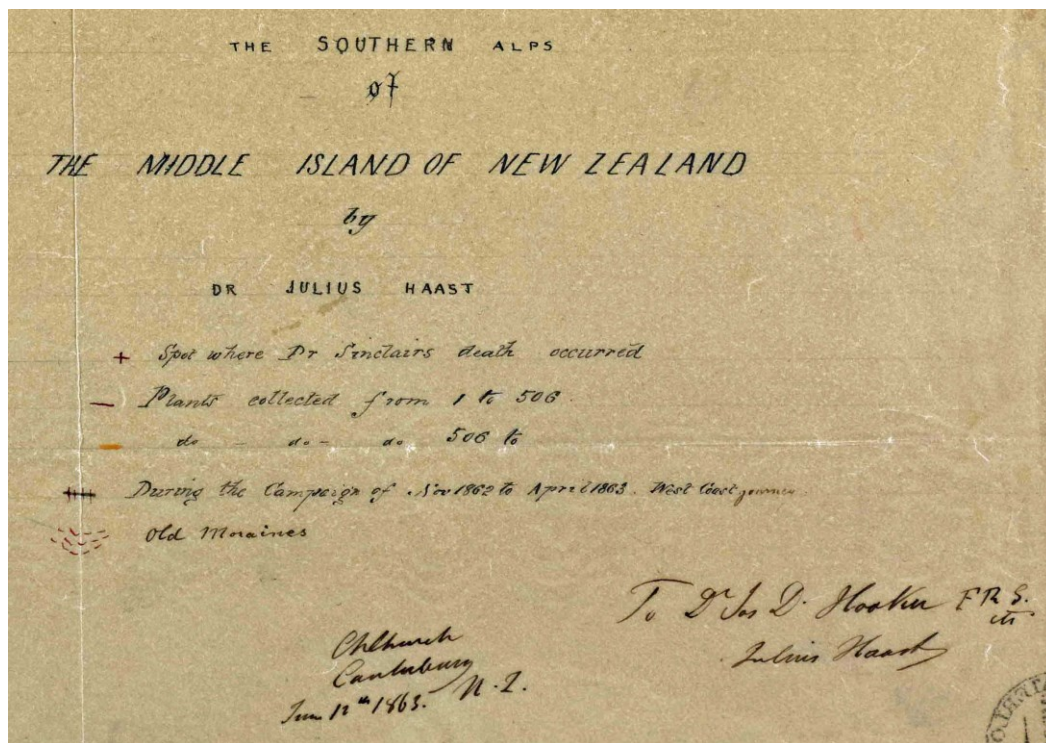 THE SOUTHERN ALPS
of
THE MIDDLE ISLAND OF NEW ZEALAND
by
DR JULIUS HAAST
Spot where Dr Sinclairs death occurred
Plants collected from 1 to 506.
do - do - do 506 to
During the Campaign of Nov 1862 to April 1863. West Coast journey
Old Moraines
To Dr Jos D. Hooker F.R.S.
Julius Haast
Chchurch
Canterbury
N. Z.
12th 1863.